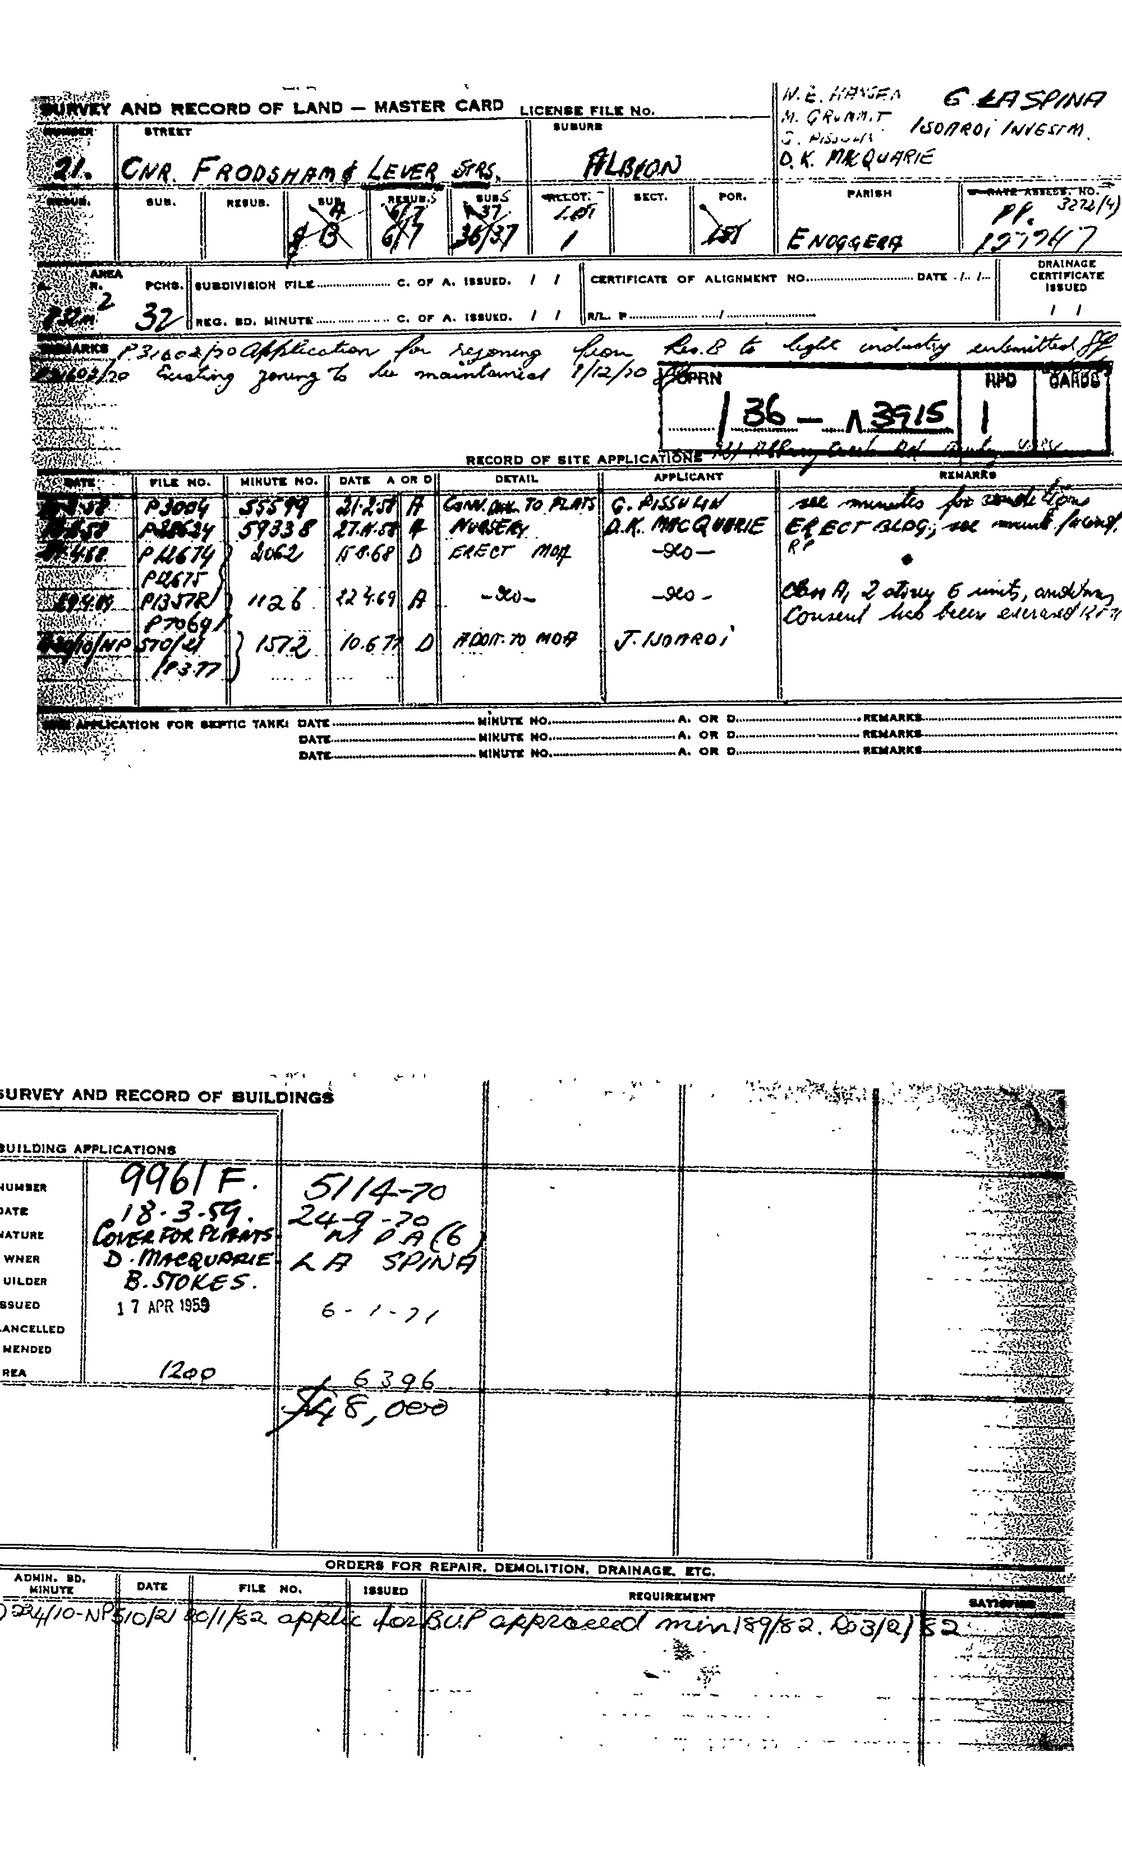 SURVEY AND RECORD OF LAND — MASTER CARD LICENSE FILE No.
N. E. HANSEN G LA SPINA
M. GRUMMIT
G. PISSULIN ISOARDI INVESTM.
D. K. MACQUARIE
NUMBER STREET SUBURB
21. CNR. FRODSHAM & LEVER STRS. ALBION
RESUB. SUB. RESUB. SUB. RESUB. SUBS ALLOT. SECT. POR. PARISH RATE ASSESS. NO.
A 6/7 37 151 PP. 3272(4)
B 6/7 36/37 1 151 ENOGGERA 127247
AREA
A. R. PCHS. SUBDIVISION FILE C. OF A. ISSUED. / / CERTIFICATE OF ALIGNMENT NO. DATE / / DRAINAGE CERTIFICATE ISSUED
32 REG. BD. MINUTE C. OF A. ISSUED. / / R/L. P / / /
REMARKS P31602/70 Application for rezoning from Res. B to light industry submitted
P31602/70 Existing zoning to be maintained 8/12/70
PRN RPD CARDS
136 – 3915 1
RECORD OF SITE APPLICATIONS
DATE FILE NO. MINUTE NO. DATE A OR D DETAIL APPLICANT REMARKS
P3004 55599 21.2.58 A CONV. DWG. TO FLATS G. PISSULIN see minutes for conditions
P28634 59338 27.11.58 A NURSERY D.K. MACQUARIE ERECT BLDG; see minute for cond.
P12674 2062 D ERECT MDA —do— RP
P12675
29.4.69 P1357R 1126 22.4.69 A —do— —do— Class A, 2 storey 6 units,
P7069 Consent has been exercised
/10/NP 510/21 1572 10.6.77 D ADDT. TO MDA J. ISOARDI
/P3.77
SITE APPLICATION FOR SEPTIC TANK: DATE MINUTE NO. A. OR D. REMARKS
DATE MINUTE NO. A. OR D. REMARKS
DATE MINUTE NO. A. OR D. REMARKS
SURVEY AND RECORD OF BUILDINGS
BUILDING APPLICATIONS
NUMBER 9961 F. 5114-70
DATE 18.3.59. 24-9-70
NATURE COVER FOR PLANTS M D A (6)
WNER D. MACQUARIE LA SPINA
UILDER B. STOKES.
SSUED 17 APR 1959 6-1-71
ANCELLED
MENDED
REA 1200 6396
$48,000
ORDERS FOR REPAIR, DEMOLITION, DRAINAGE, ETC.
ADMIN. BD. MINUTE DATE FILE NO. ISSUED REQUIREMENT SATISFIED
224/10-NP510/21 20/1/82 applic for BUP approved min 189/82. 3/2/82